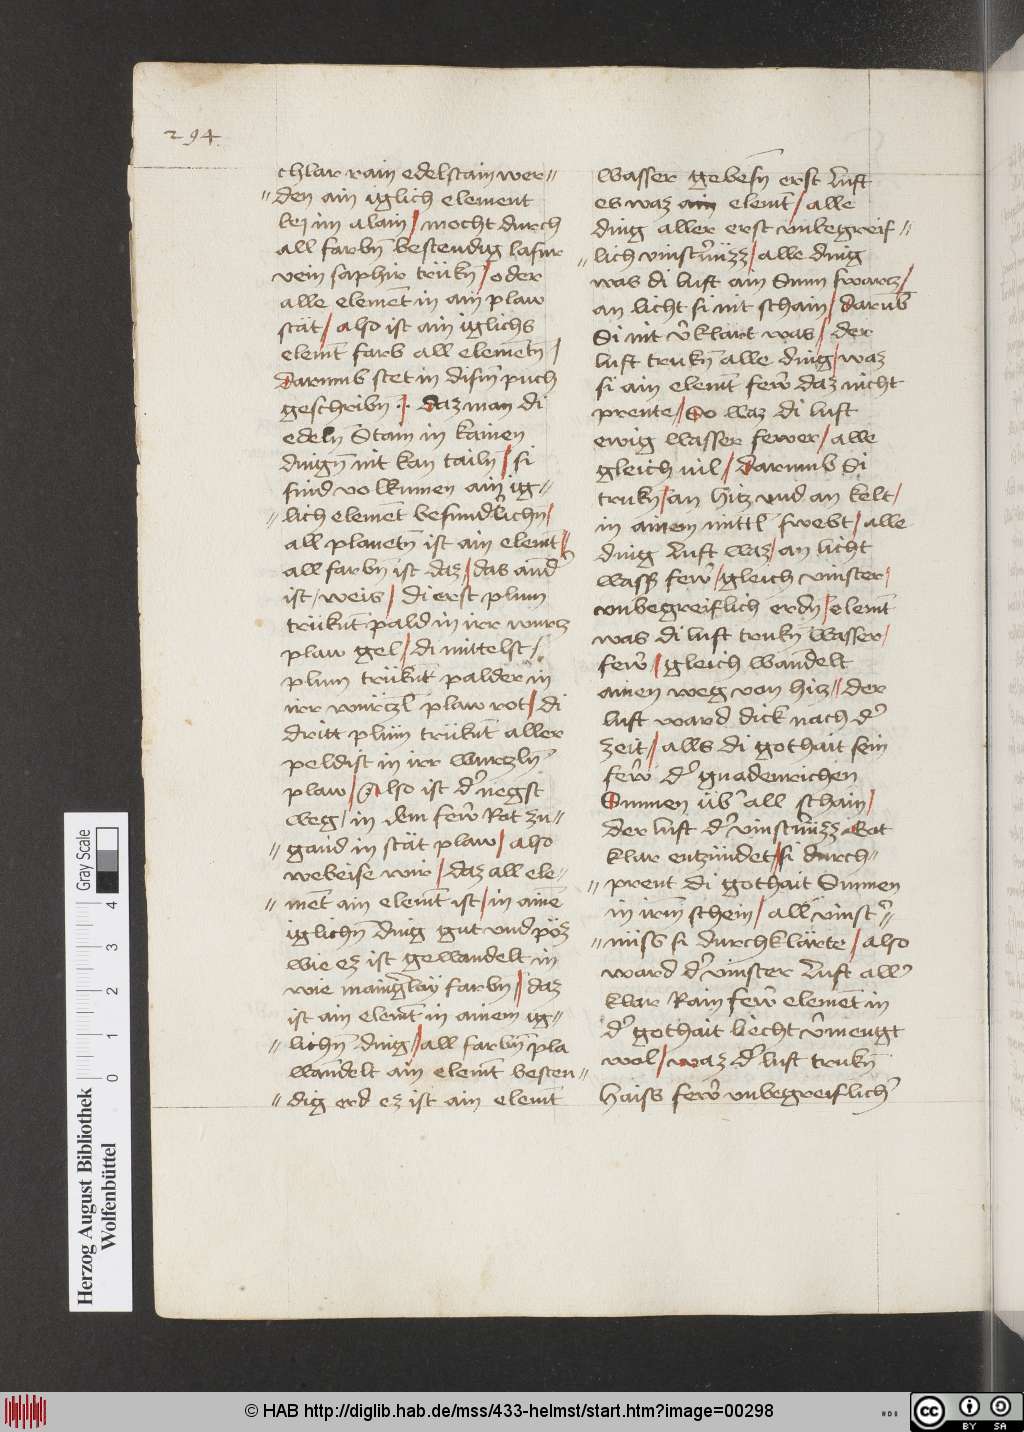 294
chlar rain edelstain wer〃
〃den ain iglich element
bej im alain / mocht durch
all farbn̄ bestendig lasur
vein saphir trükn̄ / oder
alle elemēt in ain plaw
stät / also ist ain iglichs
elemt̄ farb all elemetn̄ /
Darumb stet in dism̄ puch
geschribn̄ ·/· Daz man di
edeln̄ Stain in kainen
dingn̄ nit kan tailn̄ / si
sind volkumen ain ig〃
〃lich elemēt besundꝰlichn̄ /
all planetn̄ ist ain elemt̄ //
all farbn̄ ist daz / das andꝰ
ist / weis / di erst plum
trükn̄t pald in irr wurtz
plaw gel / di mittelst /
plum trükn̄t palder in
irr würtzl̄ plaw rot / di
dritt plüm trükn̄t aller
peldist in irr wurtzln̄
plaw / Also ist dꝰ negst
weg / in dem fewꝰ Rot zu〃
〃gand in stät plaw / also
webeise wir / daz all ele〃
〃mēt ain elemt̄ ist / in ainē
iglichn̄ ding gut vnd pöz
wie ez ist gewandelt in
wie maingꝰlaÿ farbn̄ // daz
ist ain elemt̄ in ainem ig〃
〃lichn̄ ding / all farbn̄ pla
wandelt ain elemt̄ besten〃
〃dig erd ez ist ain elemt̄
wasser gebesn̄ erst luft
es waz ain elemt̄ / alle
ding aller erst vnbegreif〃
〃lich vinstꝰnüzz / alle ding
was di luft ain Sunn swarz /
an licht si nit schain / darūb
Si nit vꝰklart was / der
luft trukn̄ alle ding / waz
si ain elemt̄ fewꝰ daz nicht
prente / So waz di luft
ewig wasser fewer / alle
gleich vil / darumb Si
trukn̄ / an hitz vnd an kelt /
in ainem mittl̄ swebt / alle
ding luft waz / an licht
wassꝰ fewꝰ / gleich vinster /
vnbegreiflich erdn̄ / elemt̄
was di luft trukn̄ wasser /
fewꝰ / gleich wandelt
ainen weg von hitz // der
luft ward dick nach dꝰ
zeit / alls di gothait sein
fewꝰ dꝰ gnadenrichen
Sunnen übꝰ all schain /
der luft dꝰ vinstꝰnüzz Rot
klar entzündet / si durch〃
〃prent di gothait Sunnen
in irm̄ schein / all vinstꝰ〃
〃nüss si durchklärte / also
ward dꝰ vinster luft allꝰ
klar Rain fewꝰ elemēt in
dꝰ gothait liecht vꝰmengt
wol / waz dꝰ luft trukn̄
haiss fewꝰ vnbegreiflichꝰ
Herzog August Bibliothek
Wolfenbüttel
0 1 2 3 4
Gray Scale
© HAB http://diglib.hab.de/mss/433-helmst/start.htm?image=00298
HAB
cc BY SA